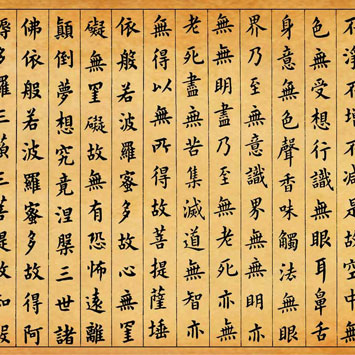 不淨不增不減是故空中無
色無受想行識無眼耳鼻舌
身意無色聲香味觸法無眼
界乃至無意識界無無明亦
無無明盡乃至無老死亦無
老死盡無苦集滅道無智亦
無得以無所得故菩提薩埵
依般若波羅蜜多故心無罣
礙無罣礙故無有恐怖遠離
顛倒夢想究竟涅槃三世諸
佛依般若波羅蜜多故得阿
耨多羅三藐三菩提故知般